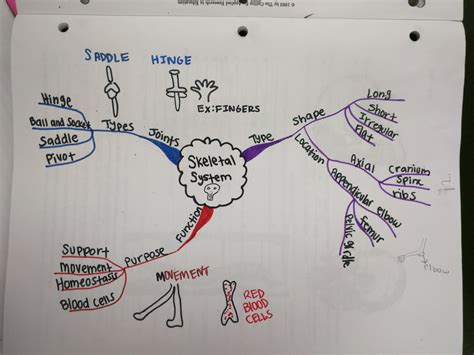 © 1995 by The Center for Applied Research in Education
SADDLE
HINGE
EX: FINGERS
Hinge
Ball and Socket
Saddle
Pivot
Types
Joints
Skeletal
System
Type
Shape
Long
Short
Irregular
Flat
Location
Axial
Cranium
Spine
ribs
Appendicular
elbow
Femur
Pelvic girdle
Function
Purpose
Support
Movement
Homeostasis
Blood Cells
MOVEMENT
RED
BLOOD
CELLS
elbow